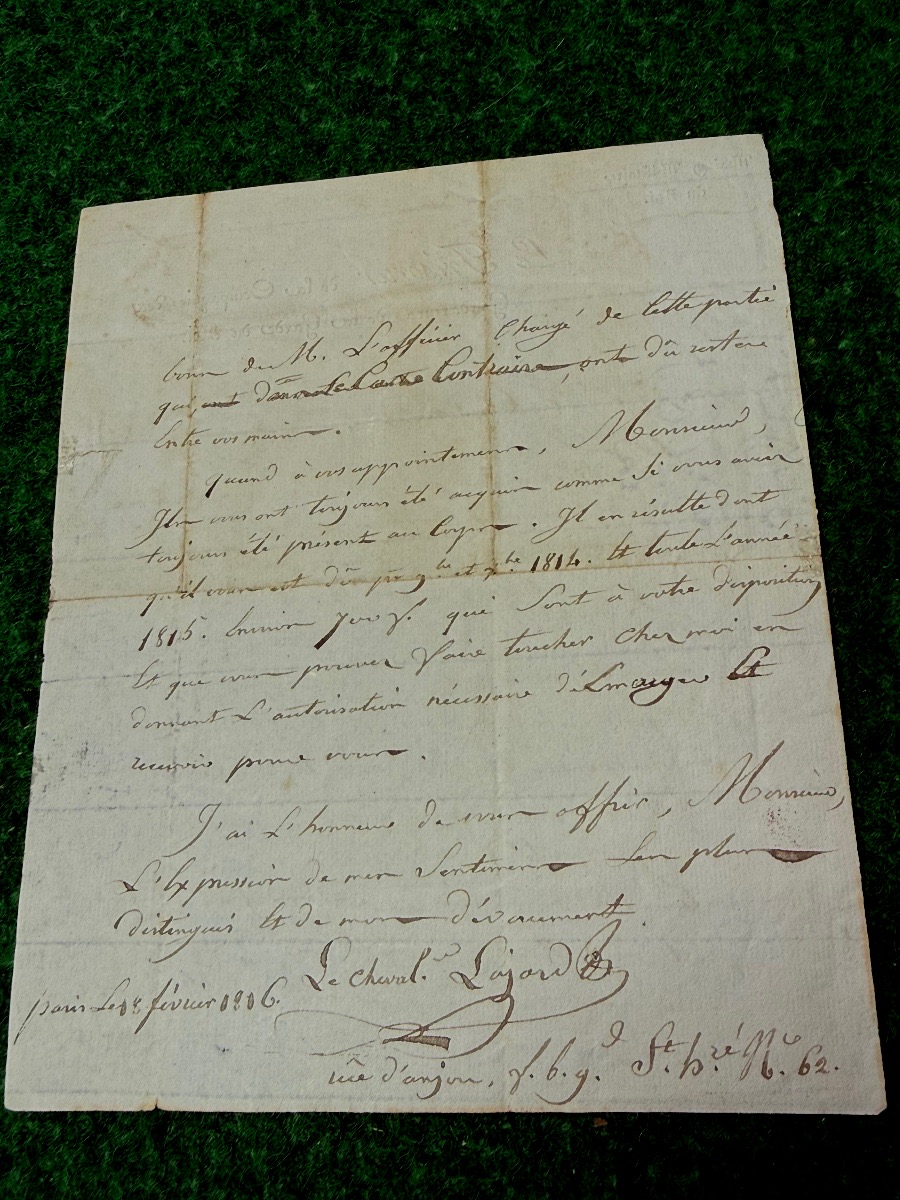 bons de M. L'officier Chargé de Cette partie
qui, ont dans le Cas Contraire, ont dû rester
Entre vos mains.
quand à vos appointemens, Monsieur,
Ils vous ont toujours été acquis comme Si vous aviez
toujours été présent au Corps. Il en résulte dont
qu'il vous est dû pr 9bre et Xbre 1814. Et toute L'année
1815. Environ 700 f. qui Sont à votre disposition
Et que vous pouvez faire toucher chez moi en
donnant L'autorisation nécessaire d'Emarger Et
recevoir pour vous.
J'ai L'honneur de vous offrir, Monsieur,
L'Expression de mes Sentimens Les plus
distingués Et de mon dévouement.
Le Cheval.er Lajard
paris Le 18 février 1816.
rüe d'anjou, f.b.g.d St. h.ré No. 62.